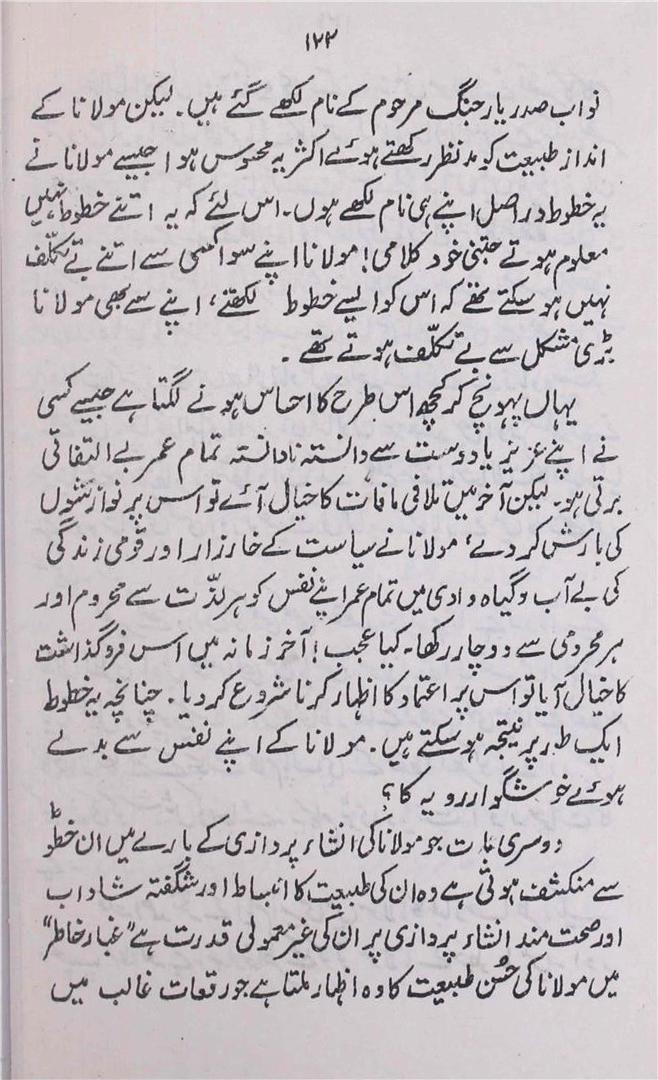 ۱۲۳
نواب صدر یار جنگ مرحوم کے نام لکھے گئے ہیں۔ لیکن مولانا کے
انداز طبیعت کو مد نظر رکھتے ہوئے اکثر یہ محسوس ہوا جیسے مولانا نے
یہ خطوط در اصل اپنے ہی نام لکھے ہوں۔ اس لئے کہ یہ اتنے خطوط نہیں
معلوم ہوتے جتنی خود کلامی! مولانا اپنے سوا کسی سے اتنے بے تکلّف
نہیں ہو سکتے تھے کہ اس کو ایسے خطوط لکھتے، اپنے سے بھی مولانا
بڑی مشکل سے بے تکلّف ہوتے تھے۔
یہاں پہونچ کر کچھ اس طرح کا احساس ہونے لگتا ہے جیسے کسی
نے اپنے عزیز یا دوست سے دانستہ نادانستہ تمام عمر بے التفاتی
برتی ہو۔ لیکن آخر میں تلافی مافات کا خیال آئے تو اس پر نوازشوں
کی بارش کر دے، مولانا نے سیاست کے خارزار اور قومی زندگی
کی بے آب و گیاہ وادی میں تمام عمر اپنے نفس کو ہر لذّت سے محروم اور
ہر محرومی سے دوچار رکھا۔ کیا عجب! آخر زمانہ میں اس فروگذاشت
کا خیال آیا تو اس پر اعتماد کا اظہار کرنا شروع کر دیا۔ چنانچہ یہ خطوط
ایک طور پر نتیجہ ہو سکتے ہیں۔ مولانا کے اپنے نفس سے بدلے
ہوئے خوشگوار رویہ کا؟
دوسری بات جو مولانا کی انشاء پردازی کے بارے میں ان خطوں
سے منکشف ہوتی ہے وہ ان کی طبیعت کا انبساط اور شگفتہ شاداب
اور صحت مند انشاء پردازی پر ان کی غیر معمولی قدرت ہے "غبار خاطر"
میں مولانا کی حُسن طبیعت کا وہ اظہار ملتا ہے جو رقعات غالب میں